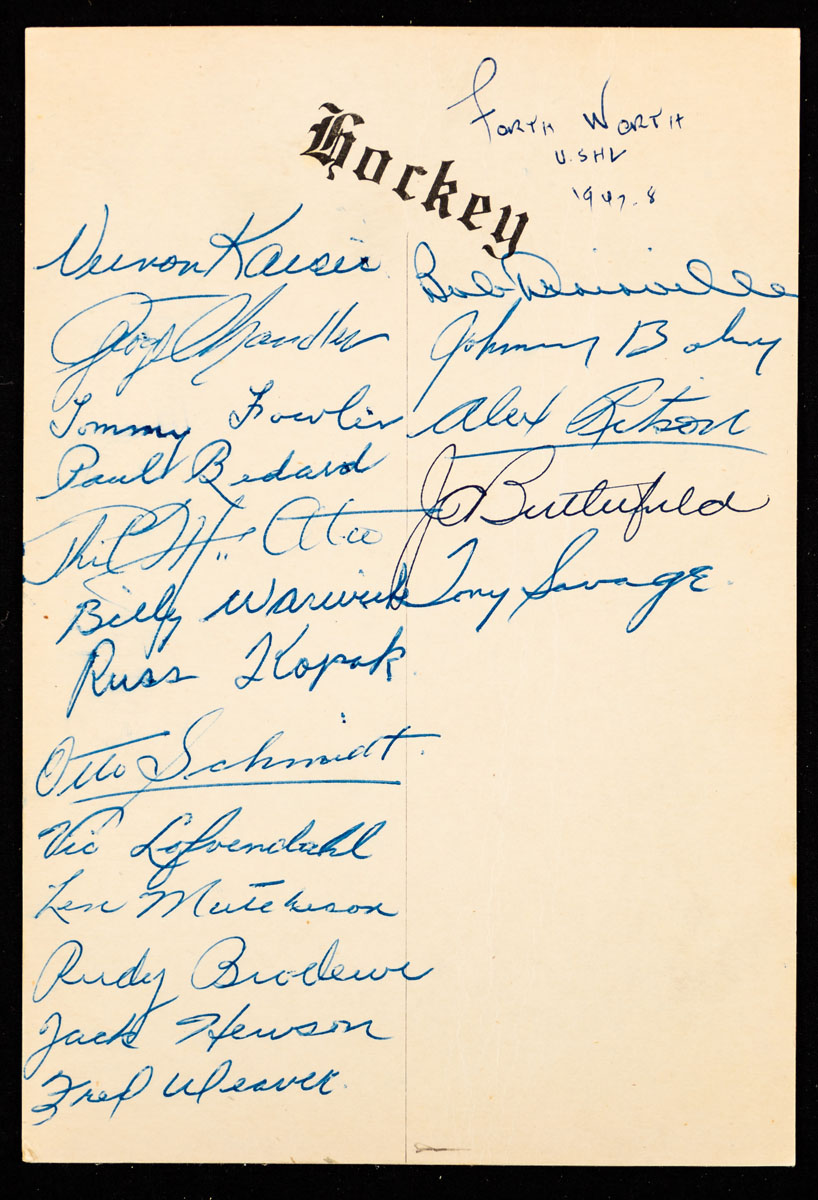 Hockey
Forth Worth
U.S H L
1947-8
Vernon Kaiser
Chandler
Tommy Fowler
Paul Bedard
Phil Mc Atee
Billy Warwick
Russ Kopak
Otto Schmidt
Vic Lofvendahl
Len Mutcheson
Rudy
Jack Hewson
Fred Weaver
Bob
Johnny Baby
Alex Ritson
J Butterfield
Tony Savage